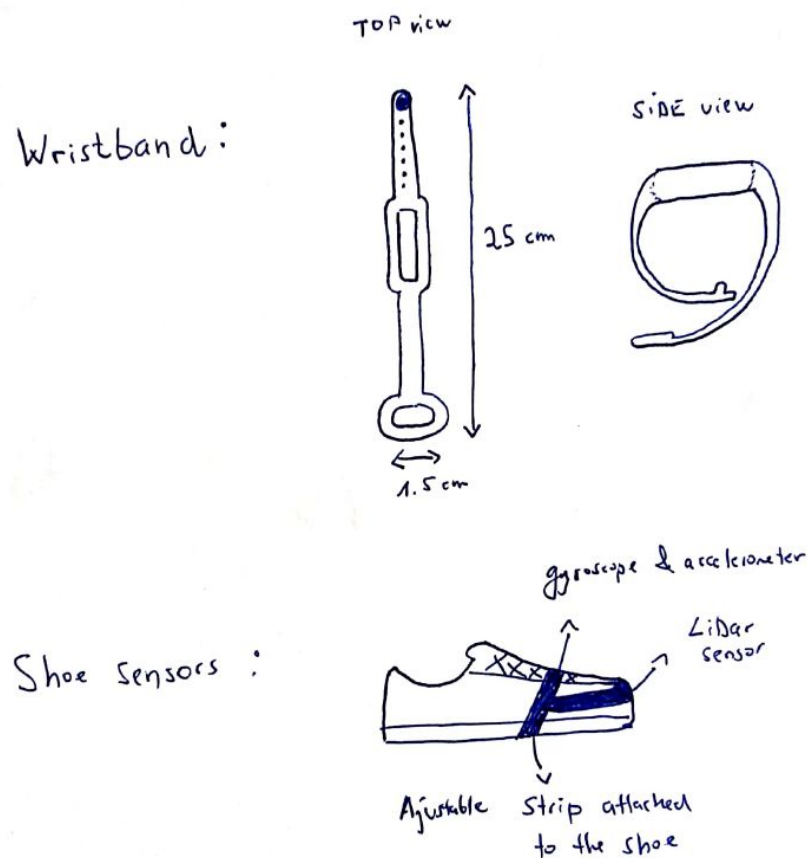 TOP view
SIDE view
Wristband :
25 cm
1.5 cm
gyroscope & accelerometer
LiDar
sensor
Shoe sensors :
Ajustable strip attached
to the shoe